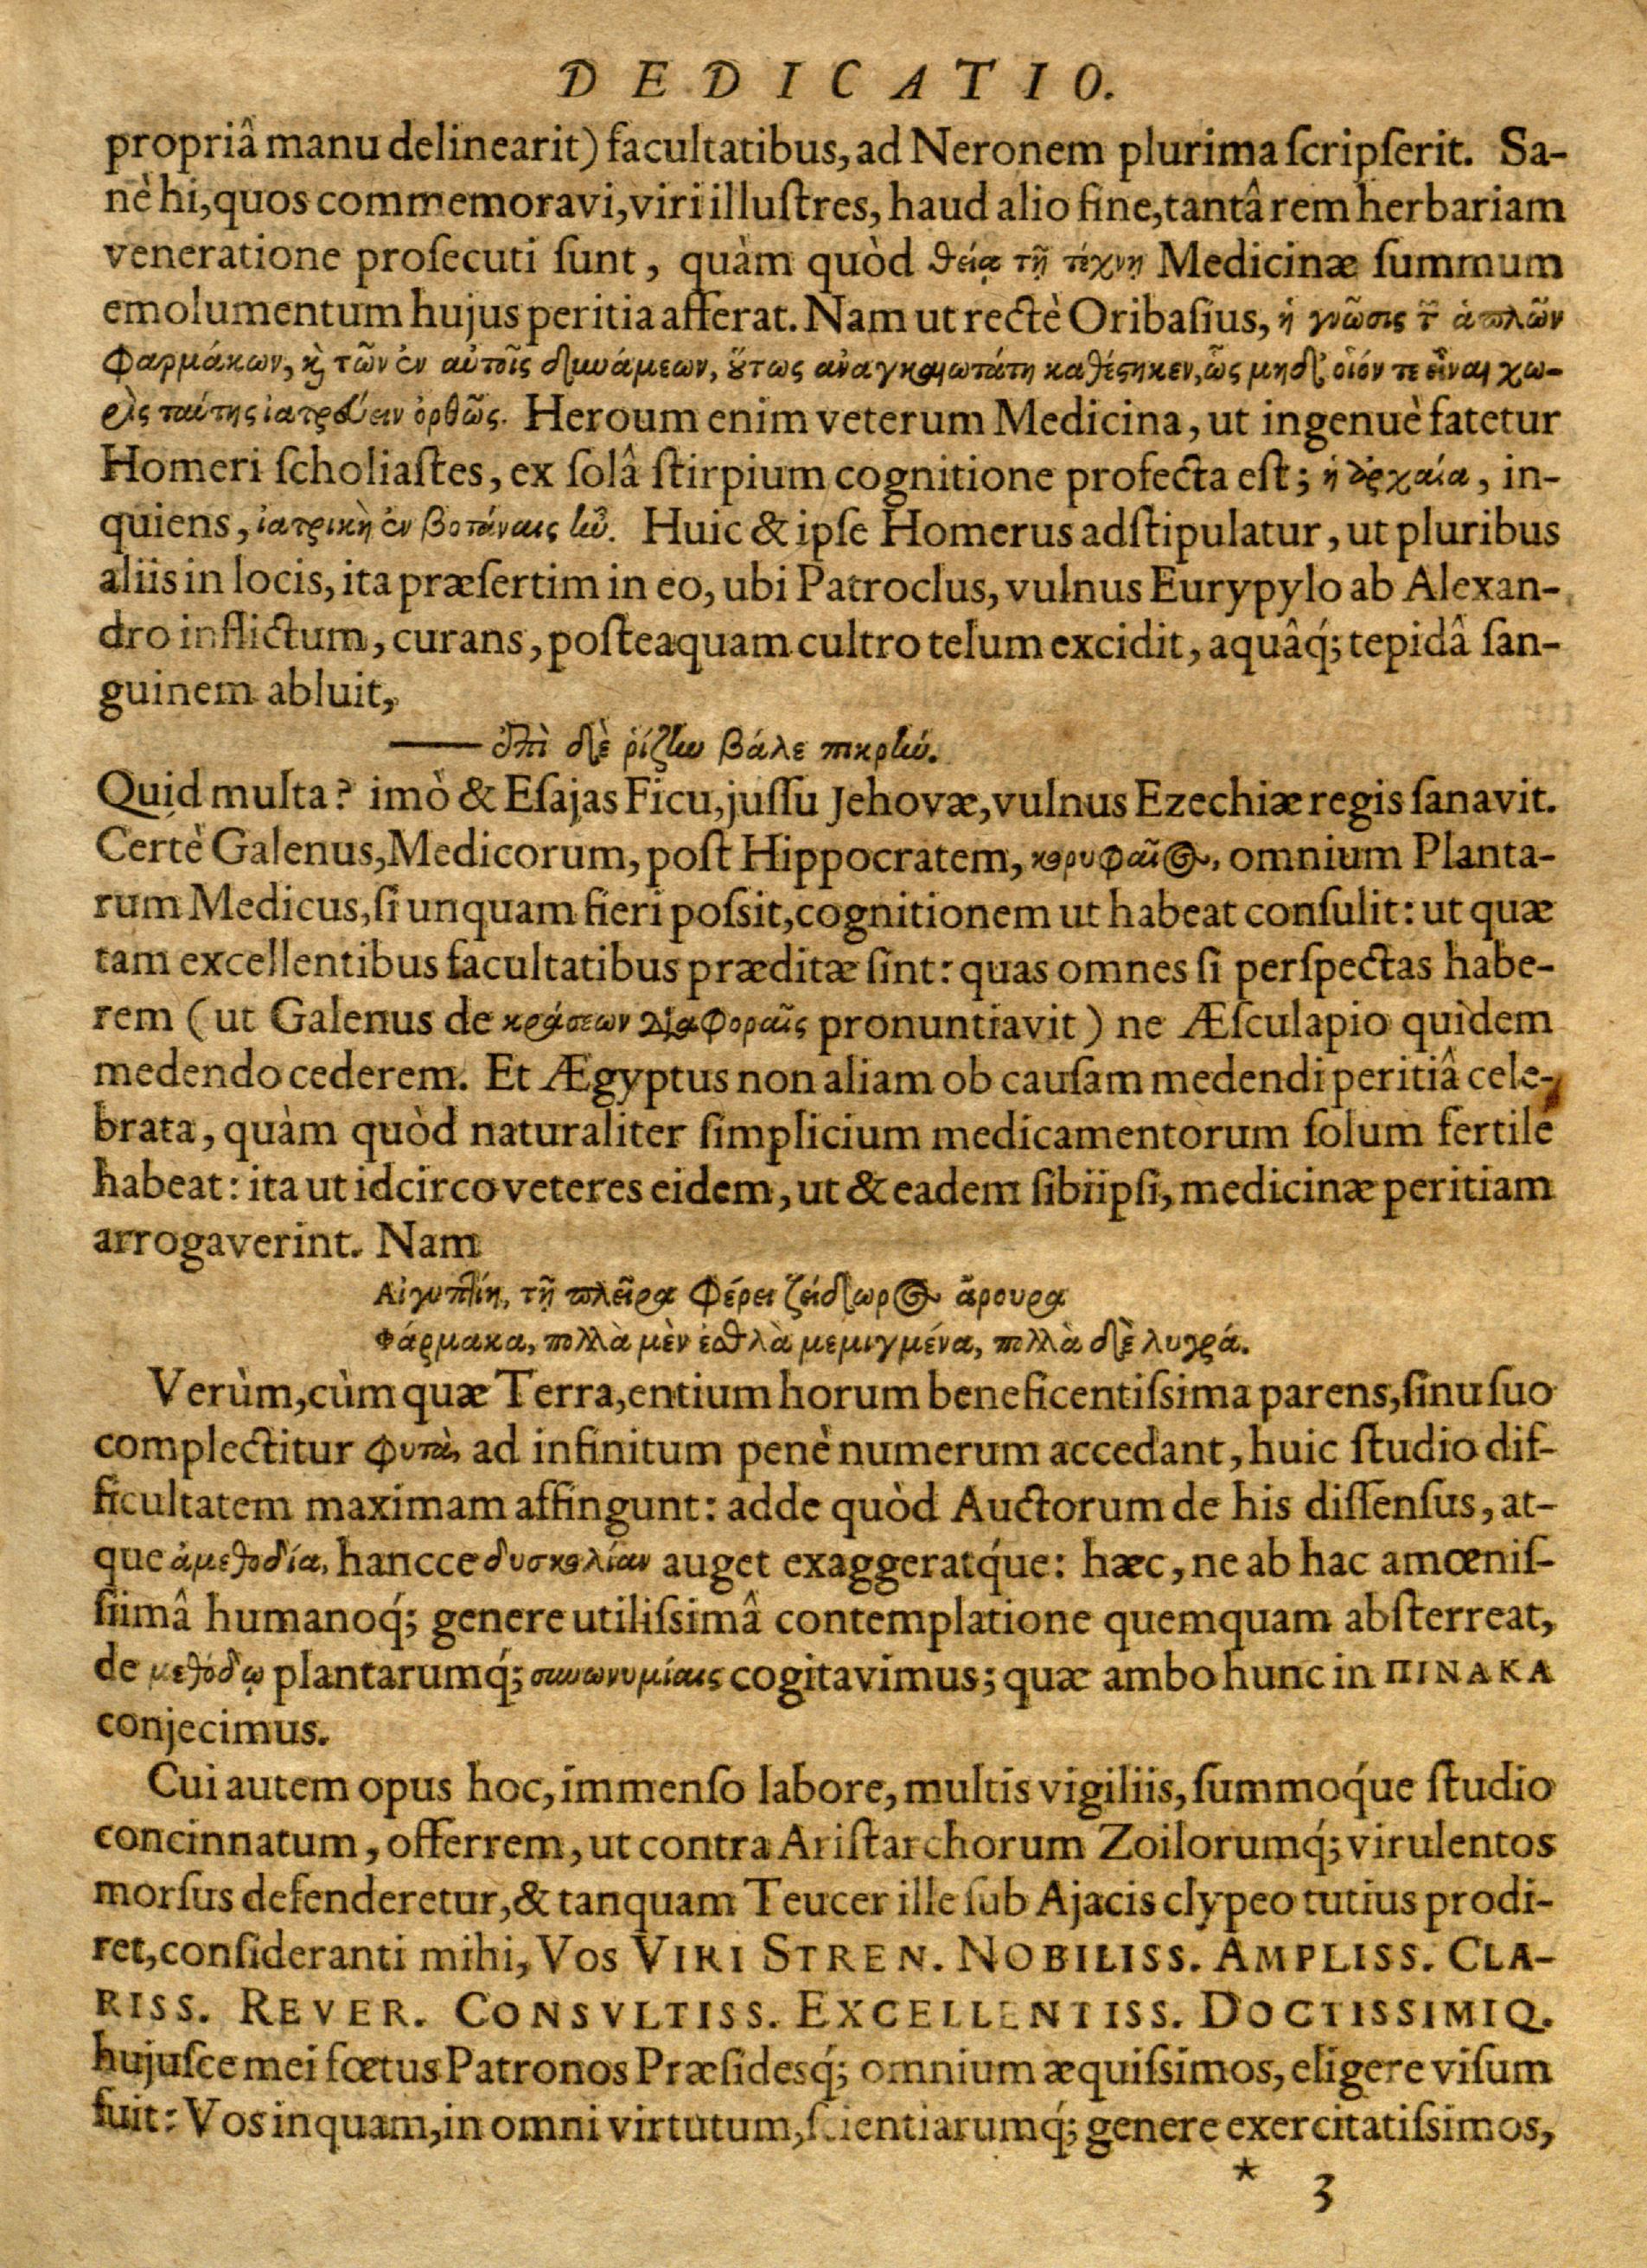 DEDICATIO.
propriâ manu delinearit) facultatibus, ad Neronem plurima ſcripſerit. Sa-
nè hi, quos commemoravi, viri illuſtres, haud alio fine, tantâ rem herbariam
veneratione proſecuti ſunt, quàm quòd θείᾳ τῇ τέχνῃ Medicinæ ſummum
emolumentum hujus peritia afferat. Nam ut rectè Oribaſius, ἡ γνῶσις τῶν ἁπλῶν
φαρμάκων, καὶ τῶν ἐν αὐτοῖς δυνάμεων, οὕτως ἀναγκαιωτάτη καθέστηκεν, ὥς μηδ᾽ οἷόν τε εἶναι χω-
ρὶς ταύτης ἰατρεύειν ὀρθῶς. Heroum enim veterum Medicina, ut ingenuè fatetur
Homeri ſcholiaſtes, ex ſolâ ſtirpium cognitione profecta eſt; ἡ ἀρχαία, in-
quiens, ἰατρικὴ ἐν βοτάναις ἦν. Huic & ipſe Homerus adſtipulatur, ut pluribus
aliis in locis, ita præſertim in eo, ubi Patroclus, vulnus Eurypylo ab Alexan-
dro inflictum, curans, poſteaquam cultro telum excidit, aquâq́; tepidâ ſan-
guinem abluit,
—— ἐπὶ δὲ ῥίζην βάλε πικρήν.
Quid multa? imò & Eſajas Ficu, juſſu Jehovæ, vulnus Ezechiæ regis ſanavit.
Certè Galenus, Medicorum, poſt Hippocratem, κορυφαῖος, omnium Planta-
rum Medicus, ſi unquam fieri poſsit, cognitionem ut habeat conſulit: ut quæ
tam excellentibus facultatibus præditæ ſint: quas omnes ſi perſpectas habe-
rem (ut Galenus de κράσεων διαφοραῖς pronuntiavit) ne Æſculapio quidem
medendo cederem. Et Ægyptus non aliam ob cauſam medendi peritiâ cele-
brata, quàm quòd naturaliter ſimplicium medicamentorum ſolum fertile
habeat: ita ut idcirco veteres eidem, ut & eadem ſibiipſi, medicinæ peritiam
arrogaverint. Nam
Αἰγυπτίη, τῇ πλεῖρα φέρει ζείδωρος ἄρουρα
Φάρμακα, πολλὰ μὲν ἐσθλὰ μεμιγμένα, πολλὰ δὲ λυγρά.
Verùm, cùm quæ Terra, entium horum beneficentiſsima parens, ſinu ſuo
complectitur φυτὰ, ad infinitum penè numerum accedant, huic ſtudio dif-
ficultatem maximam affingunt: adde quòd Auctorum de his diſſenſus, at-
que ἀμεθοδία, hancce δυσκολίαν auget exaggeratq́ue: hæc, ne ab hac amœniſ-
ſiimâ humanoq́; genere utiliſsimâ contemplatione quemquam abſterreat,
de μεθόδῳ plantarumq́; συνωνυμίαις cogitavimus; quæ ambo hunc in ΠΙΝΑΚΑ
conjecimus.
Cui autem opus hoc, immenſo labore, multis vigiliis, ſummoq́ue ſtudio
concinnatum, offerrem, ut contra Ariſtarchorum Zoilorumq́; virulentos
morſus defenderetur, & tanquam Teucer ille ſub Ajacis clypeo tutius prodi-
ret, conſideranti mihi, Vos VIRI STREN. NOBILISS. AMPLISS. CLA-
RISS. REVER. CONSVLTISS. EXCELLENTISS. DOCTISSIMIQ.
hujuſce mei fœtus Patronos Præſidesq́; omnium æquiſsimos, eligere viſum
fuit: Vos inquam, in omni virtutum, ſcientiarumq́; genere exercitatiſsimos,
* 3